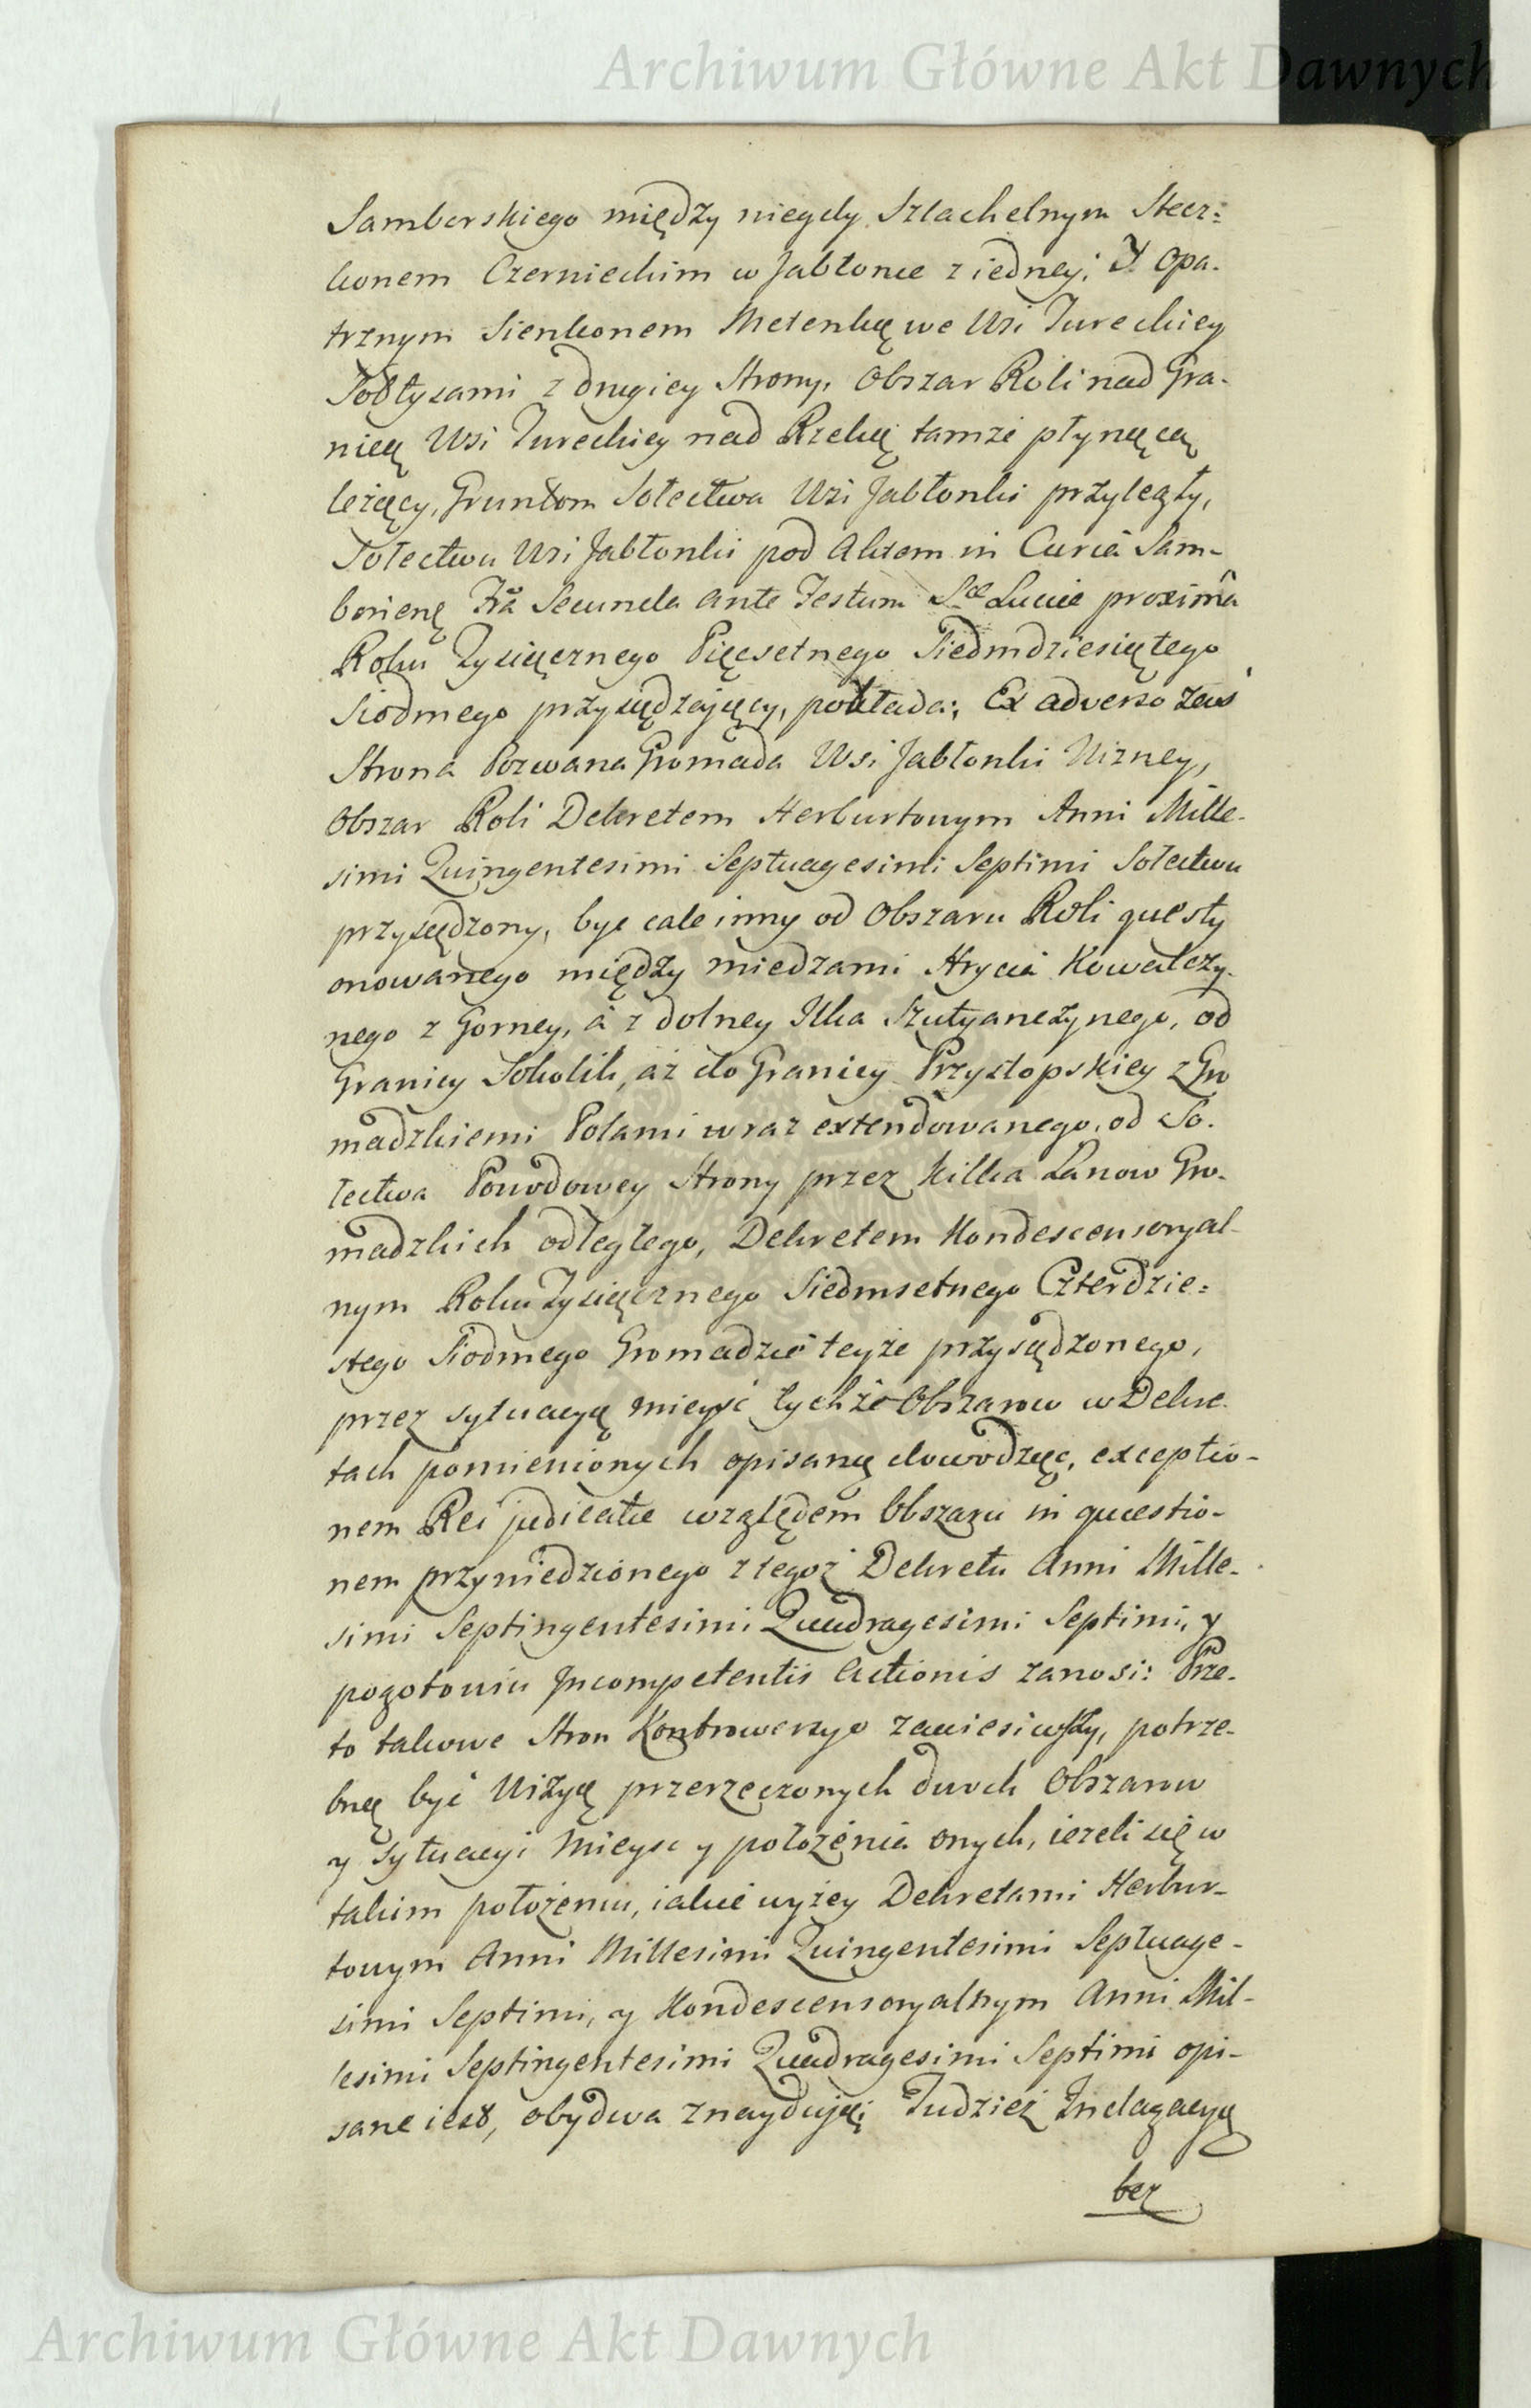 Archiwum Główne Akt Dawnych
Samborskiego między niegdy Szlachetnym Stecz:
konem Czernieckim w Jabłonce z iedney; Y Opa-
trznym Sienkonem Metenką we Wsi Tureckiey
Sołtysami z drugiey Strony, Obszar Roli nad Gra-
nicą Wsi Tureckiey nad Rzeką tamże płynącą
leżący, Gruntom Sołectwa Wsi Jabłonki przyległy,
Sołectwu Wsi Jabłonki pod Aktem in Curia Sam-
boriens Fra Secunda ante Festum Scæ Luciæ proxima
Roku Tysiącznego Pięcsetnego Siedmdziesiątego
Siodmego przysądzaiący, pokłada; Ex adverso zaś
Strona Pozwana Gromada Wsi Jabłonki Nizney,
Obszar Roli Dekretem Herburtowym Anni Mille-
simi Quingentesimi Septuagesimi Septimi Sołectwu
przysądzony, byc cale inny od Obszaru Roli questy
onowanego między miedzami Hrycia Kowalczy-
nego z Gorney, a z dolney Ilka Szutyanczynego, od
Granicy Sokolik, aż do Granicy Przysłopskiey z Gro
madzkiemi Polami wraz extendowanego, od So-
łectwa Powodowey Strony przez kilka Łanow Gro-
madzkich odległego, Dekretem Kondescensoryal-
nym Roku Tysiącznego Siedmsetnego Czterdzie:
stego Siodmego Gromadzie teyże przysądzonego,
przez sytuacyą mieysc tychże Obszarow w Dekre-
tach pomienionych opisaną dowodząc, exceptio-
nem Rei judicatæ względem Obszaru in quæstio-
nem przywiedzionego z tegoż Dekretu Anni Mille-
simi Septingentesimi Quadragesimi Septimi, y
pogotowiu Incompetentis Actionis zanosi: Prze-
to takowe Stron Kontrowersye zawiesiwszy, potrze-
bną być Wizyą przerzeczonych dwoch Obszarow
y Sytuacyi Mieysc y położenia onych, ieżeli się w
takim położeniu, iakie wyżey Dekretami Herbur-
towym Anni Millesimi Quingentesimi Septuage-
simi Septimi, y Kondescensoryalnym Anni Mil-
lesimi Septingentesimi Quadragesimi Septimi opi-
sane iest, obydwa znayduią; Tudzież Indagacyą
bez
Archiwum Główne Akt Dawnych